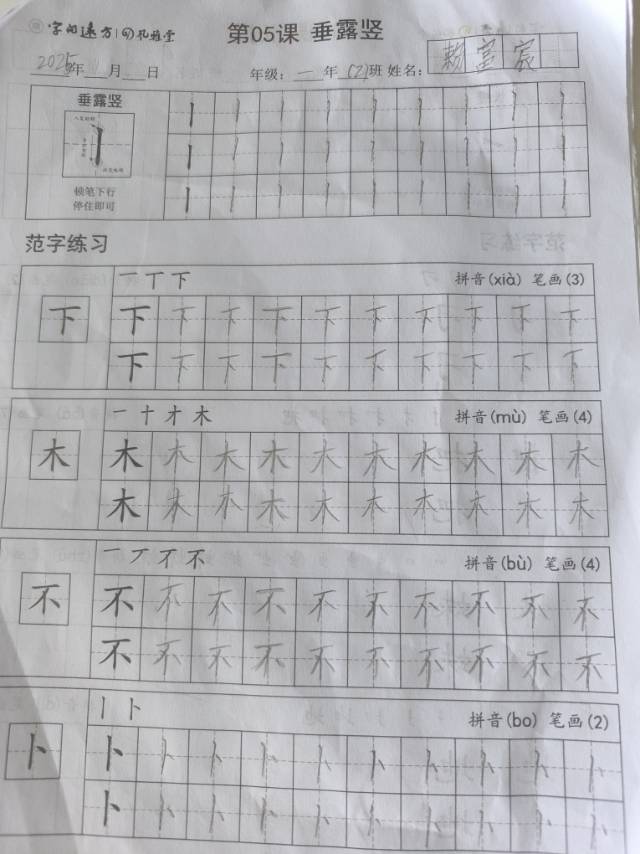 字的遠方 孔雅堂
第05课 垂露竖
2025年 月 日 年级：一 年 (2)班 姓名：赖富宸
垂露竖
顿笔下行
停住即可
范字练习
一丅下 拼音(xià) 笔画(3)
下 下下下下下下下下下下
下下下下下下下下下下
一十才木 拼音(mù) 笔画(4)
木 木木木木木木木木木木
木木木木木木木木木木
一丆不不 拼音(bù) 笔画(4)
不 不不不不不不不不不不
不不不不不不不不不不
丨卜 拼音(bo) 笔画(2)
卜 卜卜卜卜卜卜卜卜卜卜
卜卜卜卜卜卜卜卜卜卜